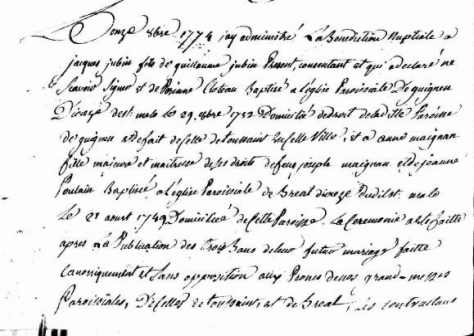 Le onze 8bre 1774 jay administré La Benediction Nuptiale a
jacques jubin fils de guillaume jubin Present, consentant et qui a declaré ne
Scavoir Signer et de Perinne Cloteau Baptisé a l'eglise Paroissiale de guignen
Diocèze de st. malo le 29. 1732 Domicilié de droit de laditte Paroisse
de guignen et de fait de Celle de toussaint en Cette Ville, et a anne maignan
fille majeure et maitresse de ses droits de feus joseph maignan et de jeanne
Poulain Baptisée a l'eglise Paroissiale de Breal diocèze dudit st. malo
le 21 aout 1749 Domiciliée de Cette Paroisse. La Ceremonie a été faitte
apres La Publication des trois Bans de leur futur mariage faitte
Canoniquement et Sans opposition aux Prones de nos grand-messes
Paroissiales, De Celles de toussaint, et de Breal, Les contractans